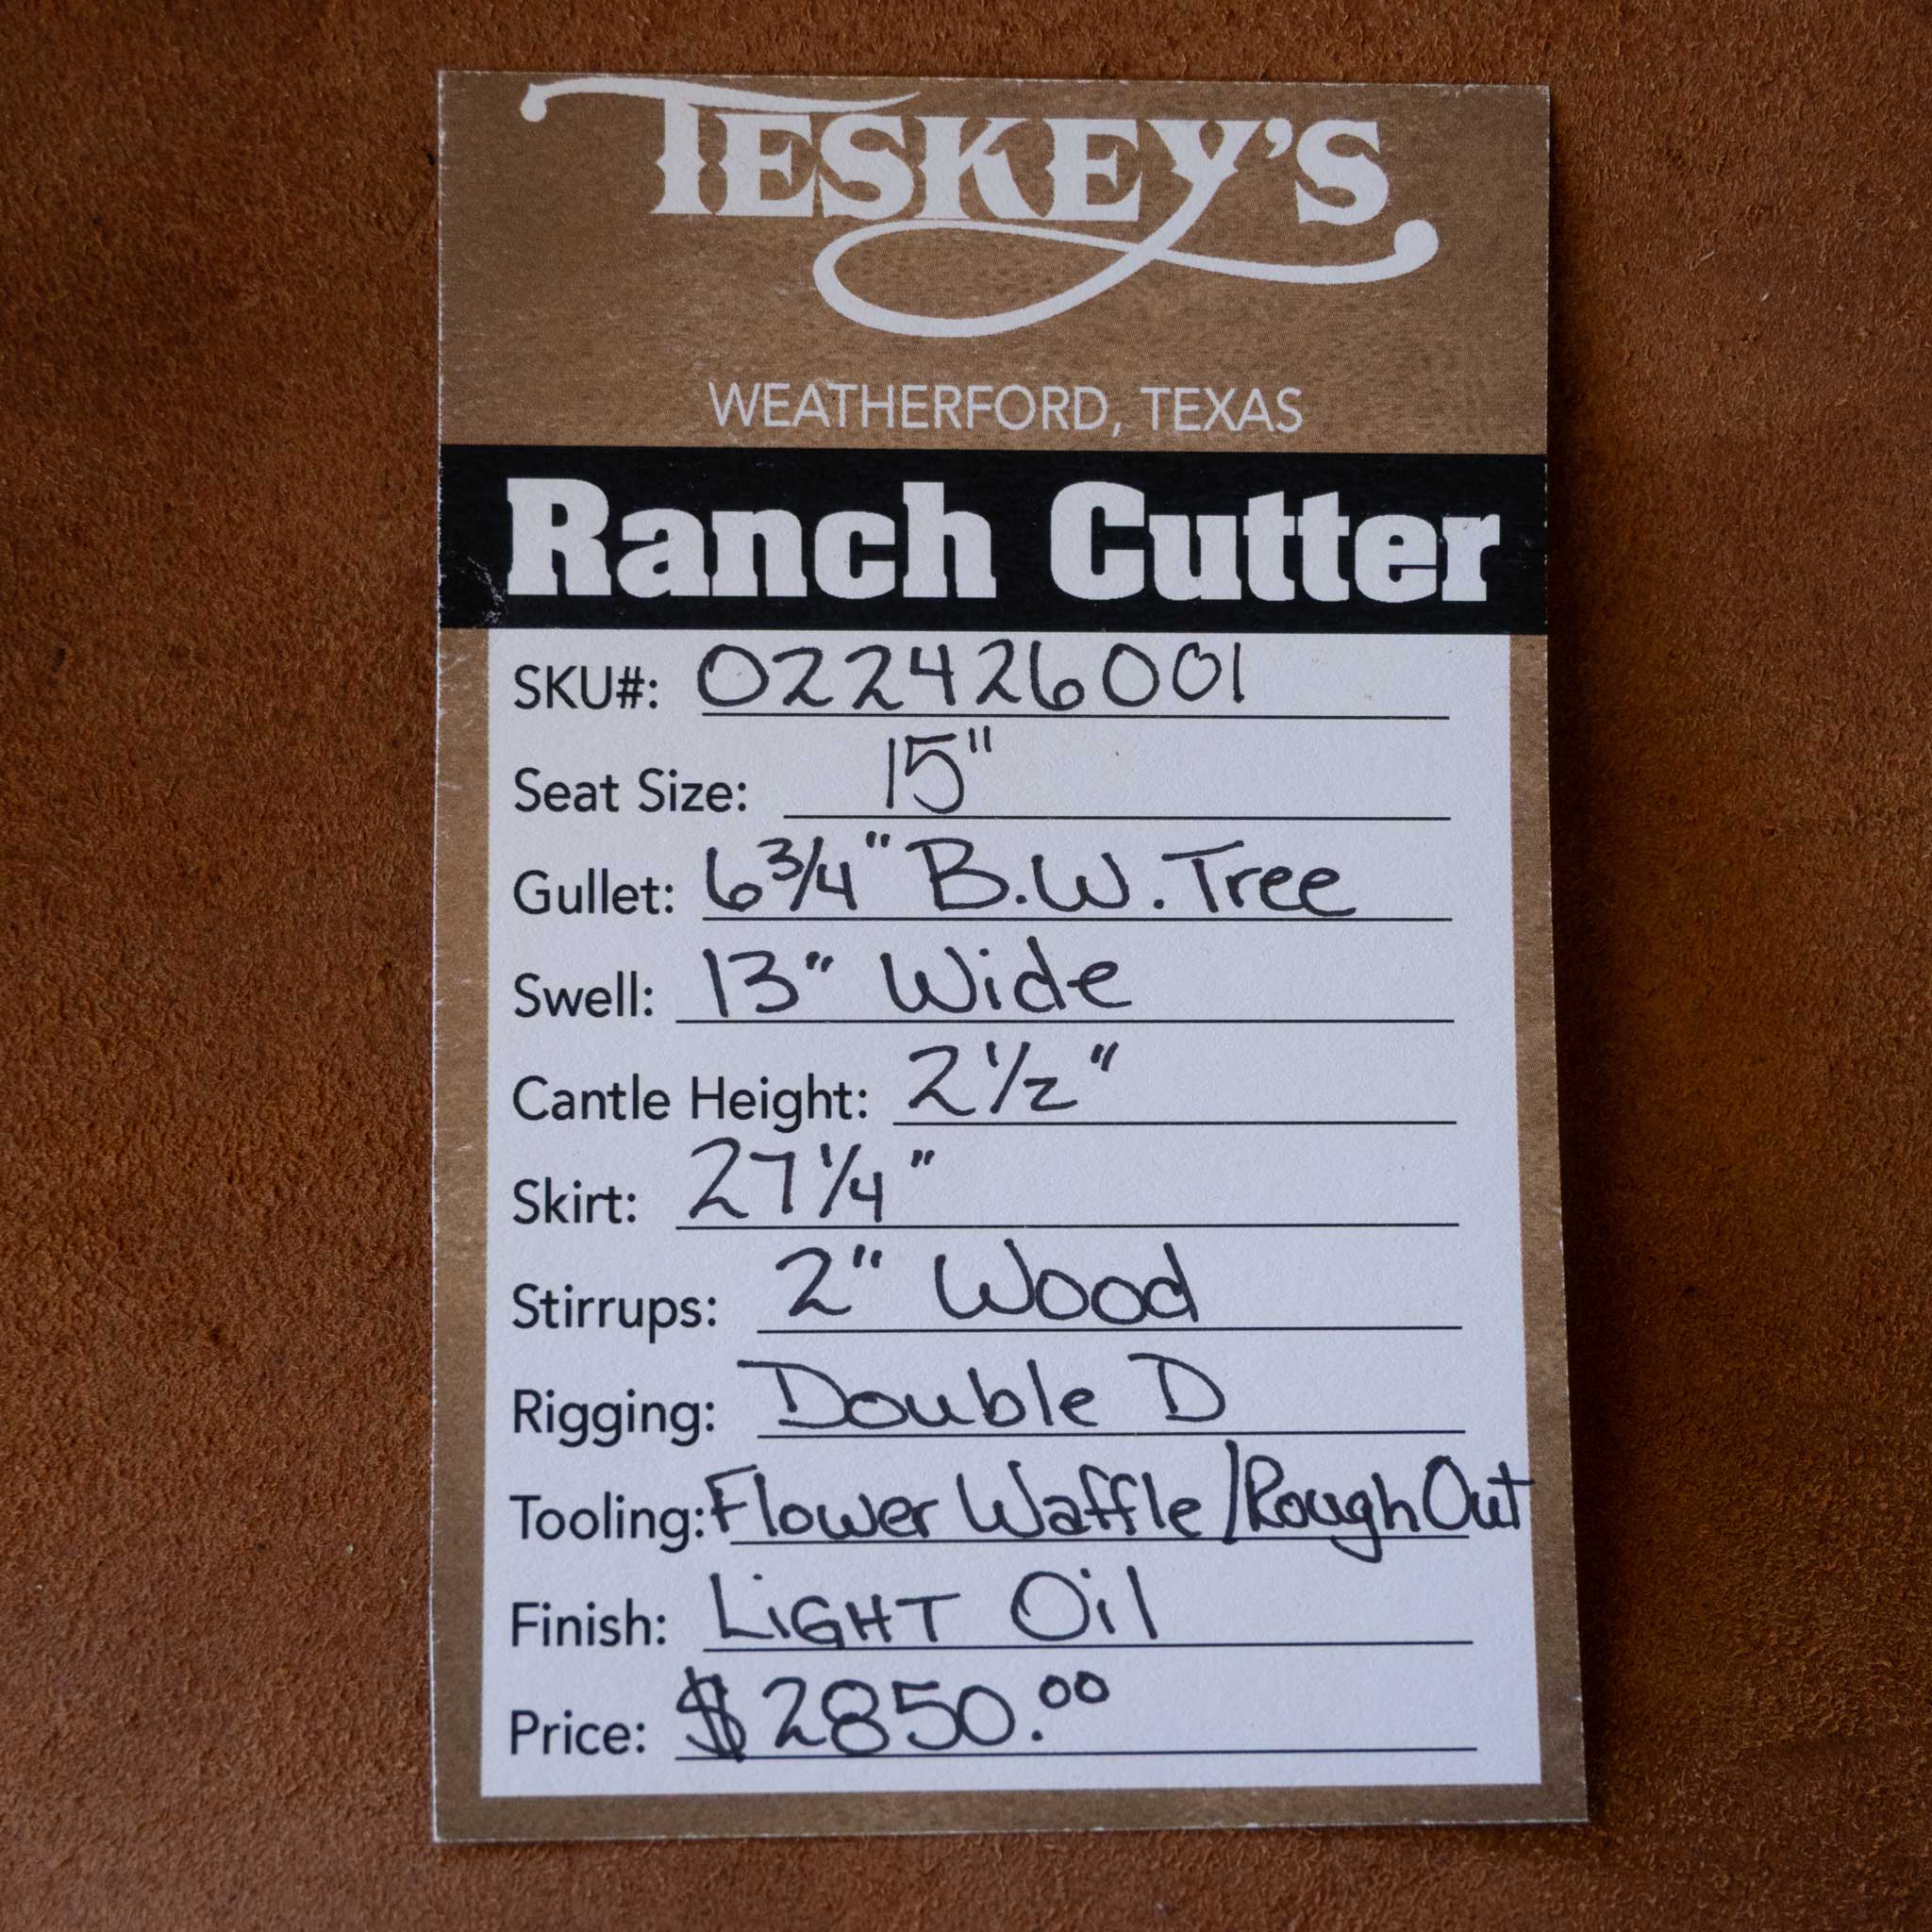 TESKEY'S
WEATHERFORD, TEXAS
Ranch Cutter
SKU#: 022426001
Seat Size: 15"
Gullet: 6 3/4" B.W. Tree
Swell: 13" Wide
Cantle Height: 2 1/2"
Skirt: 27 1/4"
Stirrups: 2" Wood
Rigging: Double D
Tooling: Flower Waffle/Rough Out
Finish: LiGHT Oil
Price: $2850.00